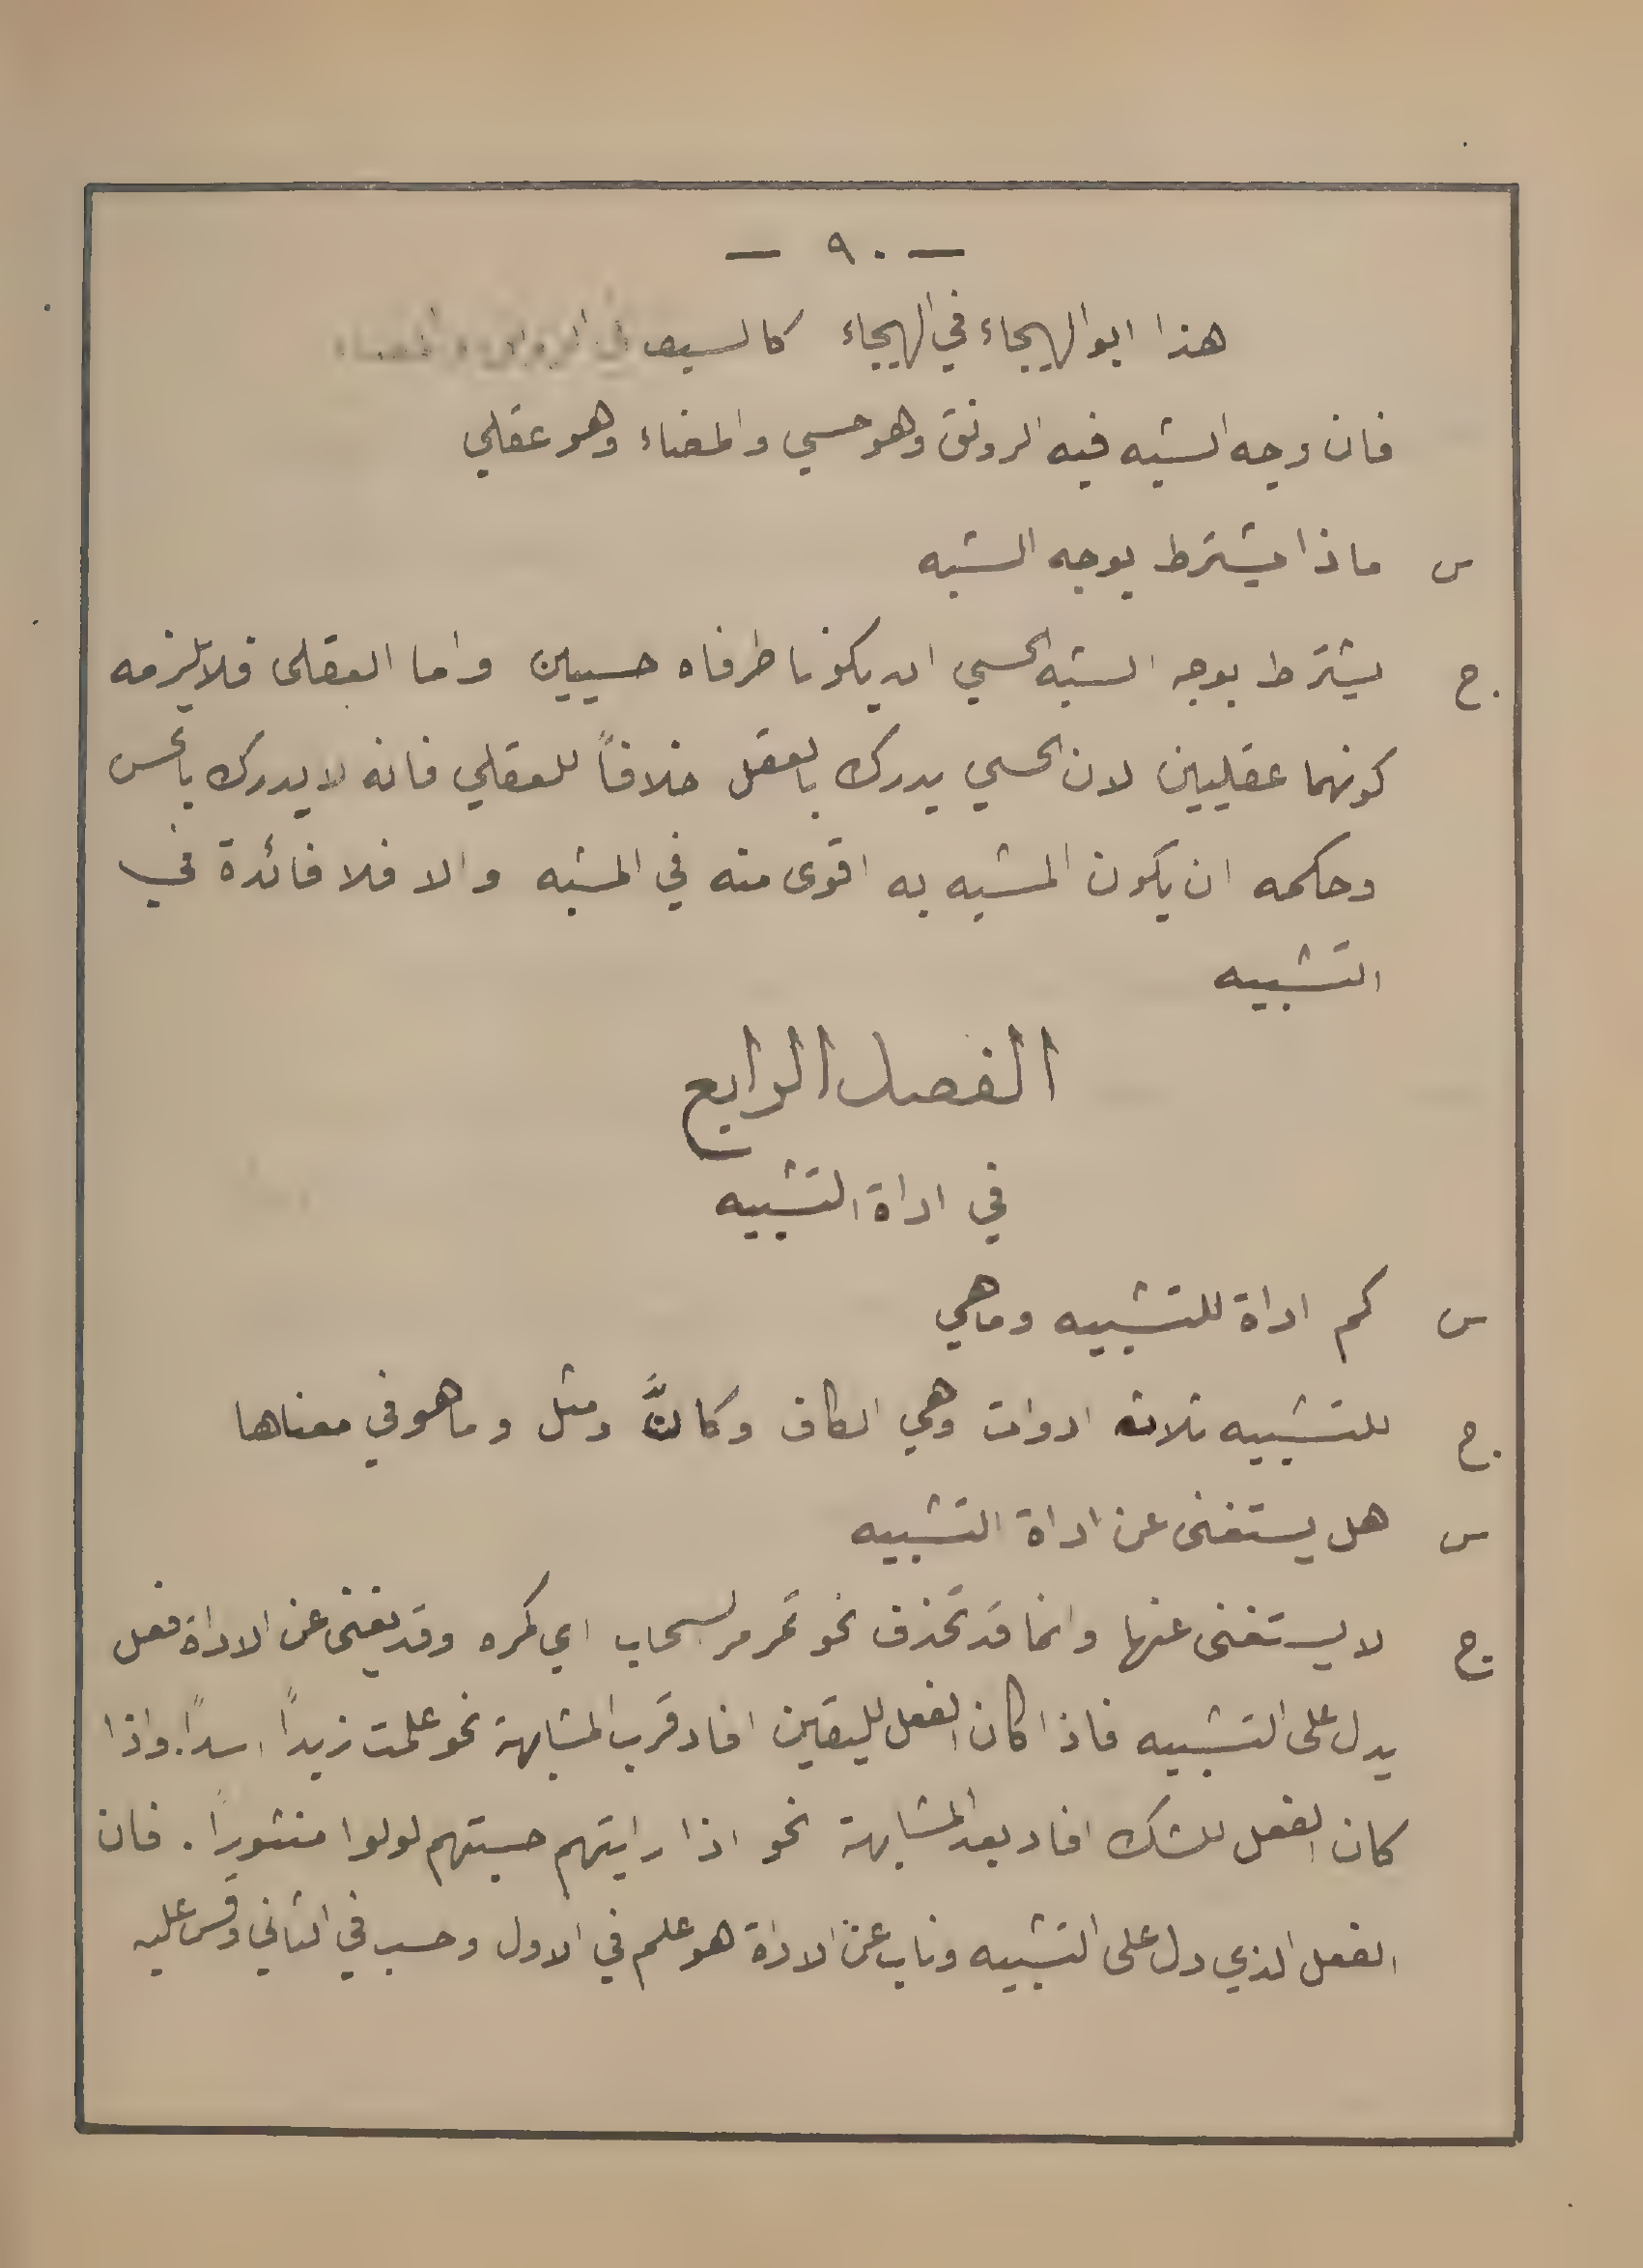 — ٩٠ —
هذا ابو الهيجاء في الهيجاء كالسيف في الرونق والمضاء
فان وجه الشبه فيه الرونق وهو حسي والمضاء وهو عقلي
س ماذا يشترط بوجه الشبه
ج. يشترط بوجه الشبه الحسي ان يكونا طرفاه حسيين واما العقلى فلا يلزمه
كونهما عقليين لان الحسي يدرك بالعقل خلافاً للعقلي فانه لا يدرك بالحس
وحكمه ان يكون المشبه به اقوى منه في المشبه والا فلا فائدة في
التشبيه
الفصل الرابع
في اداة التشبيه
س كم اداة للتشبيه وما هي
ج. للتشبيه ثلاثة ادوات وهي الكاف وكانَّ ومثل وما هو في معناها
س هل يستغنى عن اداة التشبيه
ج. لا يستغنى عنها وانما قد تحذف نحو تمر مر السحاب اي كمره وقد يغنى عن الاداة فعل
يدل على التشبيه فاذا كان الفعل لليقين افاد قرب المشابهة نحو علمت زيداً اسداً. واذا
كان الفعل للشك افاد بعد المشابهة نحو اذا رايتهم حسبتهم لولوا منثوراً. فان
الفعل الذي دل على التشبيه وناب عن الاداة هو علم في الاول وحسب في الثاني وقس عليه